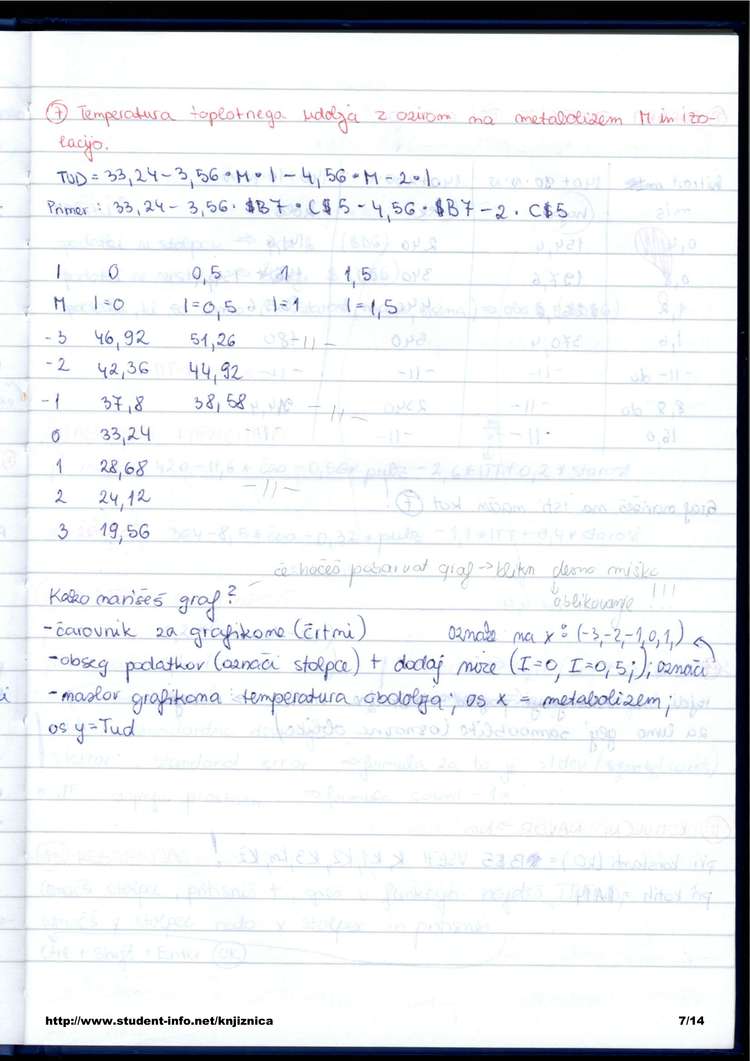 ⑦ Temperatura toplotnega udobja z ozirom na metabolizem M in izo-
lacijo.
TUD = 33,24 - 3,56 * M * I - 4,56 * M - 2 * I
Primer: 33,24 - 3,56 * $B7 * C$5 - 4,56 * $B7 - 2 * C$5
I 0 0,5 1 1,5
M I=0 I=0,5 I=1 I=1,5
-3 46,92 51,26 -11-
-2 42,36 44,92
-1 37,8 38,58 -11-
0 33,24
1 28,68
2 24,12 -11-
3 19,56
če hočeš pobarvat graf → klikn desno miško
Kako narišeš graf? ↓ !!!
oblikovanje
-čarovnik za grafikone (črtni) oznake na x: (-3,-2,-1,0,1,)
-obseg podatkov (označi stolpce) + dodaj niže (I=0, I=0,5;); označi
-naslov grafikona: temperatura obdobja; os x = metabolizem;
os y = Tud
http://www.student-info.net/knjiznica 7/14